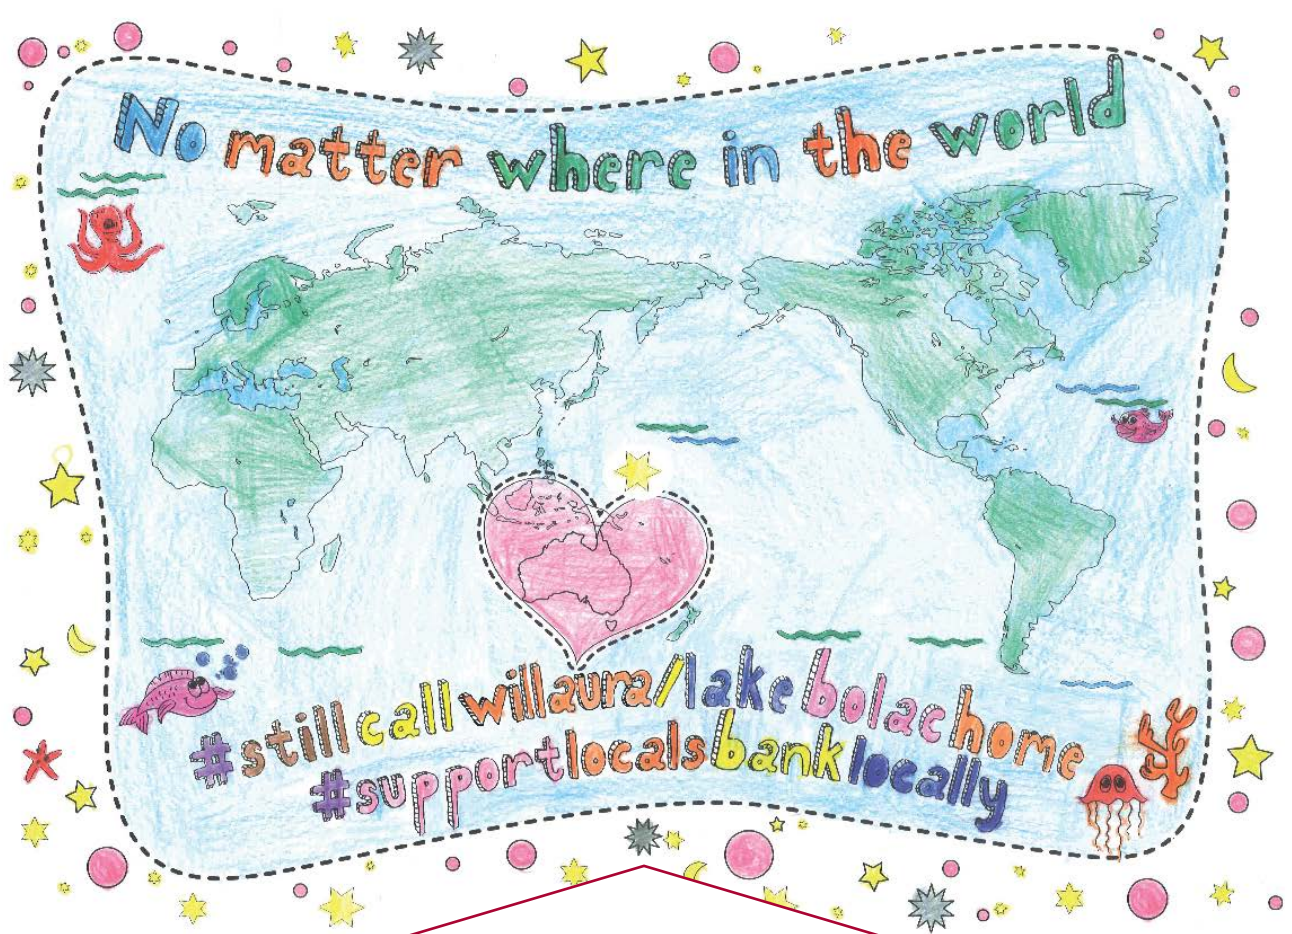 No matter where in the world
#stillcallwillaura/lakebolachome
#supportlocalsbanklocally